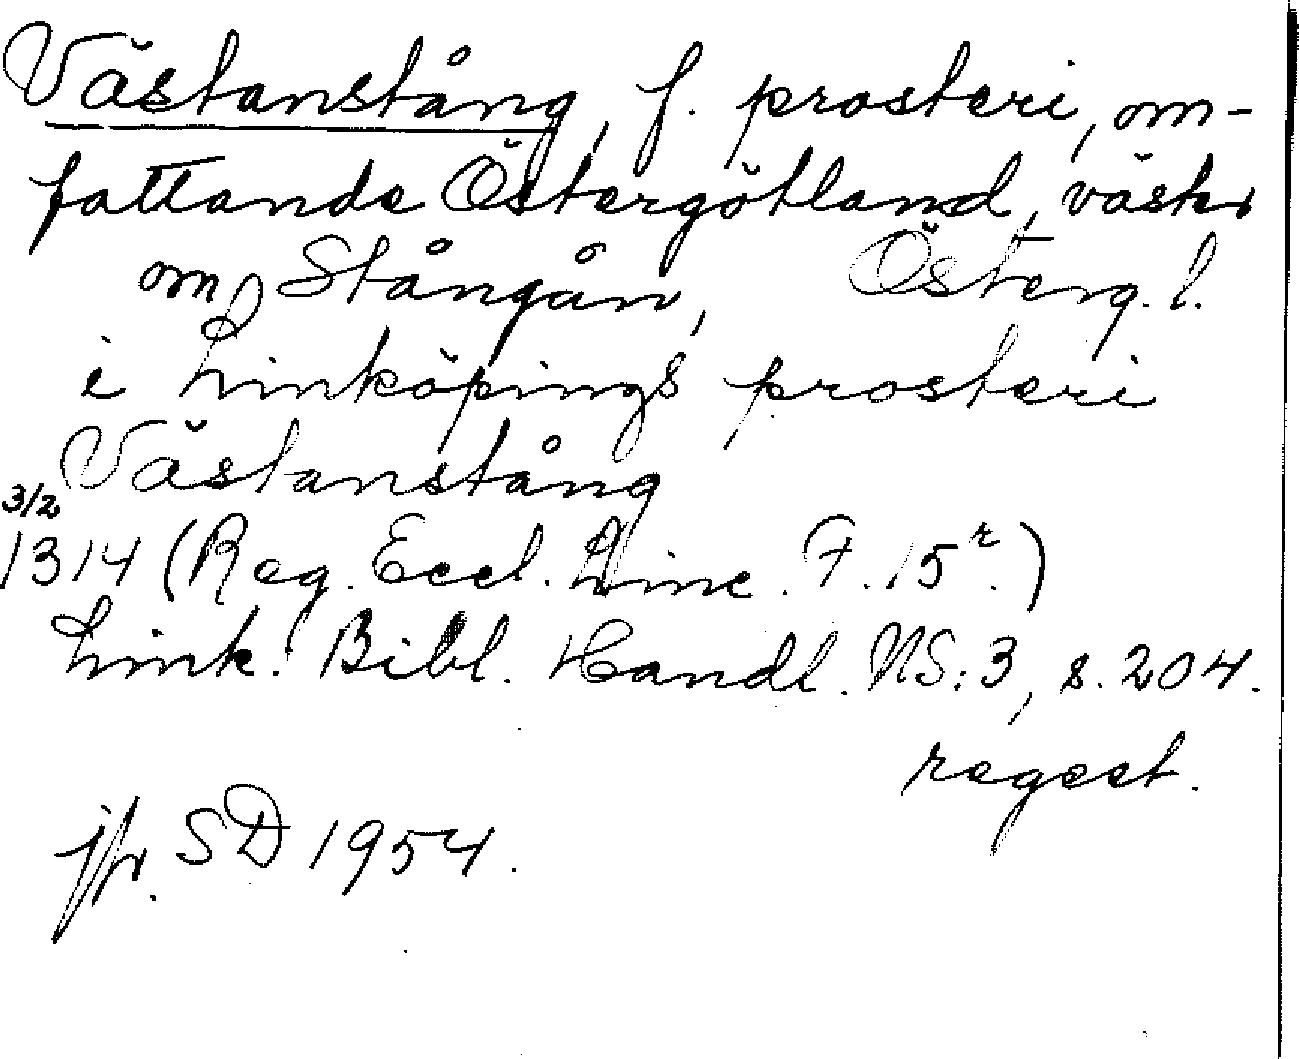 Västanstång, f. prosteri, om-
fattande Östergötland, väster
om Stångån, Österg. l.
i Linköpings prosteri
Västanstång
3/2
1314 (Reg. Eccl. Linc. F. 15r.)
Link. Bibl. Handl. NS: 3, s. 204.
regest.
jfr. SD 1954.